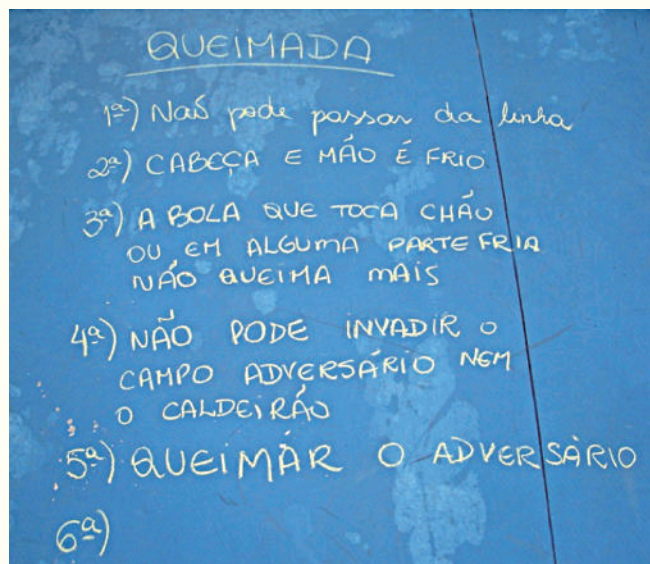 QUEIMADA
1ª) Não pode passar da linha
2ª) CABEÇA E MÃO É FRIO
3ª) A BOLA QUE TOCA CHÃO
OU EM ALGUMA PARTE FRIA
NÃO QUEIMA MAIS
4ª) NÃO PODE INVADIR O
CAMPO ADVERSÁRIO NEM
O CALDEIRÃO
5ª) QUEIMAR O ADVERSÁRIO
6ª)